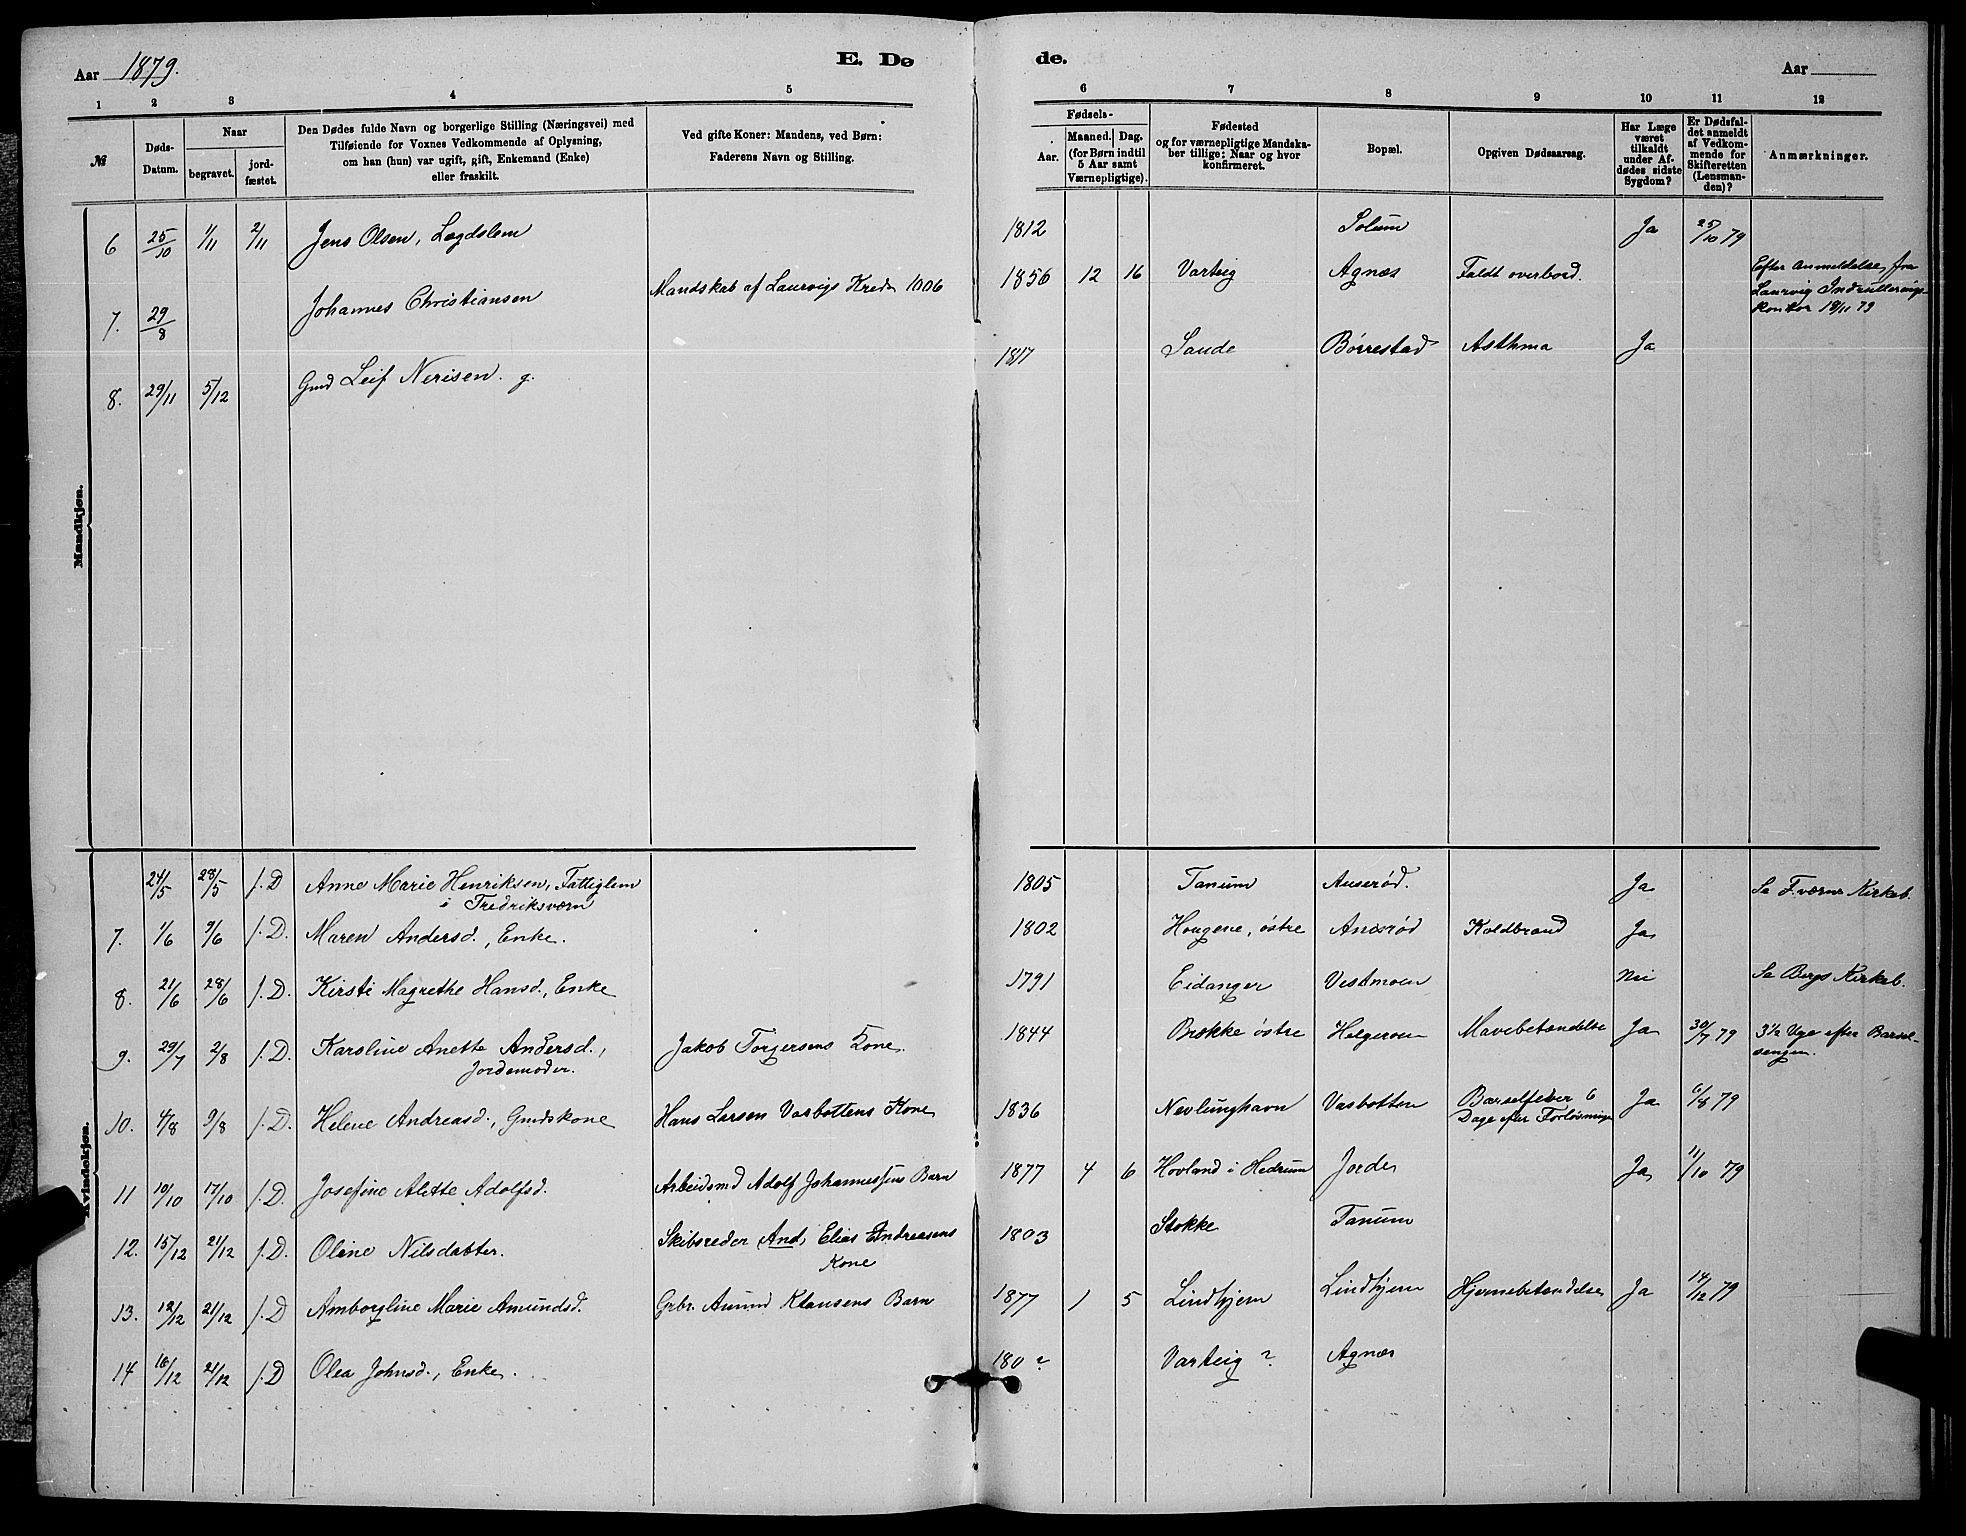 Aar 1879.
E. Dø
1 2 3 4 5
№
Døds-
Datum.
Naar
begravet.
jord-
fæstet.
Den Dødes fulde Navn og borgerlige Stilling (Næringsvei) med
Tilføiende for Voxnes Vedkommende af Oplysning,
om han (hun) var ugift, gift, Enkemand (Enke)
eller fraskilt.
Ved gifte Koner: Mandens, ved Børn:
Faderens Navn og Stilling.
Mandkjøn.
6 25/10 1/11 2/11 Jens Olsen, Lægdslem
7. 29/8 Johannes Christiansen Mandskab af Laurvigs Kreds 1006
8. 29/11 5/12 Gmd Leif Nerisen. g.
Kvindekjøn.
24/5 28/5 f. D Anne Marie Henriksen, Fattiglem
i Fredriksværn
7. 1/6 9/6 f. D. Maren Andersd., Enke.
8. 21/6 28/6 f. D. Kirsti Magrethe Hansd., Enke
9. 29/7 2/8 f. D. Karoline Anette Andersd., Jakob Torgersens Kone.
Jordemoder.
10. 4/8 9/8 f. D. Helene Andreasd., Gmdskone Hans Larsen Vasbottens Kone
11 10/10 17/10 f. D. Josefine Alette Adolfsd. Arbeidsmd Adolf Johannessens Barn
12. 15/12 21/12 f. D. Oline Nilsdatter. Skibsreder And. Elias Andreasens
Kone
13. 12/12 21/12 f. D Amborgline Marie Amundsd. Grbr. Amund Klausens Barn
14 16/12 21/12 f. D Olea Johnsd., Enke.
de.
Aar
6 7 8 9 10 11 12
Fødsels-
Aar.
Maaned. Dag.
(for Børn indtil
5 Aar samt
Værnepligtige).
Fødested
og for værnepligtige Mandska-
ber tillige: Naar og hvor
konfirmeret.
Bopæl.
Opgiven Dødsaarsag.
Har Læge
været
tilkaldt
under Af-
dødes sidste
Sygdom?
Er Dødsfal-
det anmeldt
af Vedkom-
mende for
Skifteretten
(Lensman-
den)?
Anmærkninger.
1812 Solum Ja 25/10 79
1856 12 16 Varteig Agnæs Faldt overbord. Efter Anmeldelse fra
Laurvig Indrullerings-
kontor 19/11 79
1817 Saude Børrestad Asthma Ja
1805 Tanum Auserød. Ja Se F.værns Kirkeb.
1802 Hougene, østre Anesrød Koldbrand Ja
1791 Eidanger Vestmoen Nei Se Bergs Kirkeb.
1844 Brekke østre Helgeroen Mavebetændelse Ja 30/7 79 3½ Uge efter Barsel-
sengen.
1836 Nevlunghavn Vasbotten Barselfeber 6 Ja 6/8 79
Dage efter Forløsningen
1877 4 6 Hovland i Hedrum Jorde Ja 11/10 79
1803 Stokke Tanum
1877 1 5 Lindhjem Lindhjem Hjernebetændelse Ja 14/12 79
180? Varteig ? Agnæs